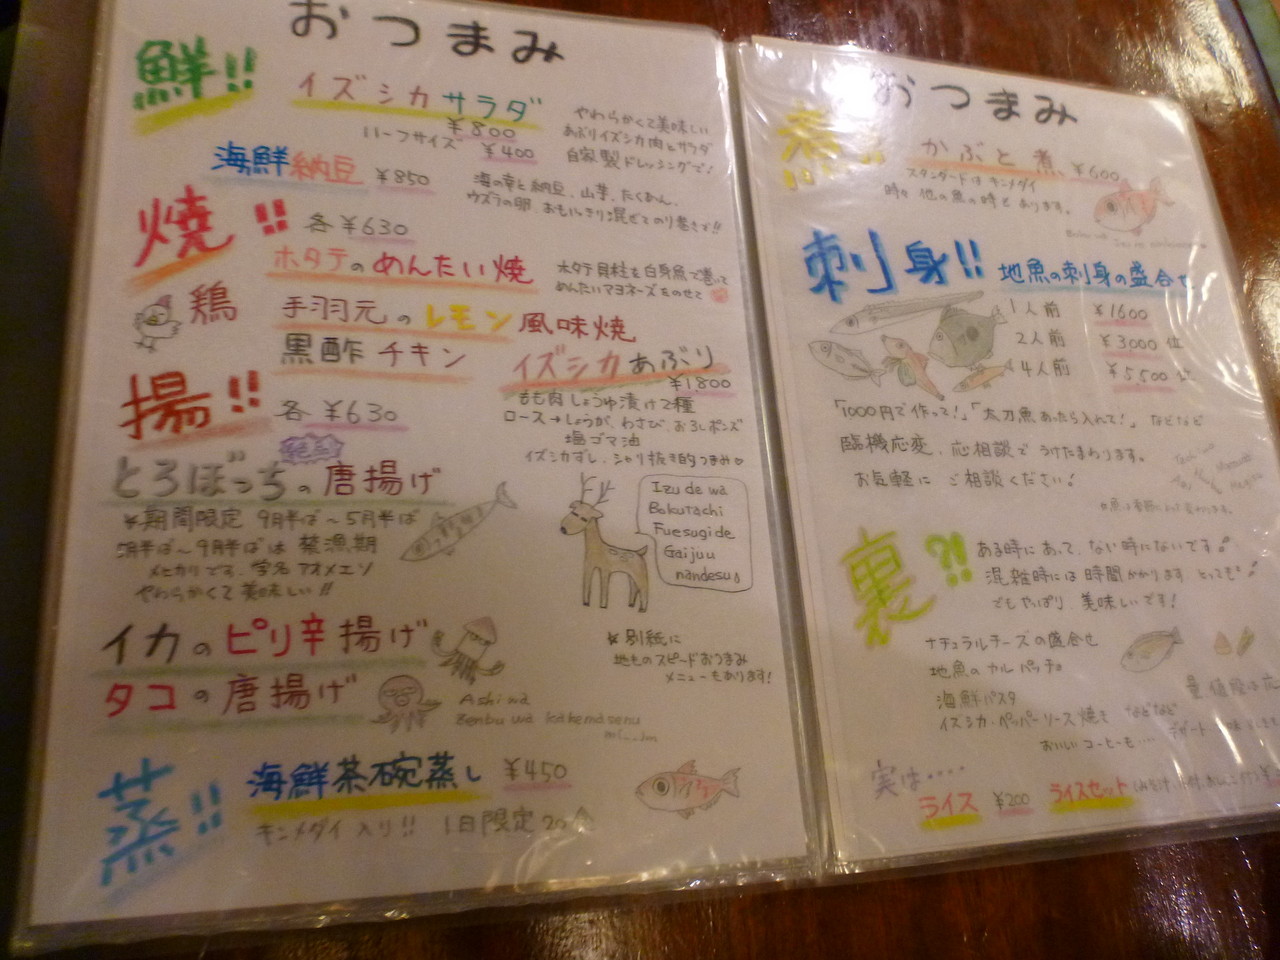 おつまみ
鮮!!
イズシカサラダ
¥800
ハーフサイズ ¥400
やわらかくて美味しい
あぶりイズシカ肉とサラダ
自家製ドレッシングで!
海鮮納豆 ¥850
海の幸と納豆、山芋、たくあん、
ウズラの卵、おもいっきり混ぜてのり巻きで!!
焼!! 各¥630
ホタテのめんたい焼
ホタテ貝柱を白身魚で巻いて
めんたいマヨネーズをのせて
鶏
手羽元のレモン風味焼
黒酢チキン
イズシカあぶり
¥1,800
もも肉しょうゆ漬け2種
ロース→しょうが、わさび、おろしポンズ
塩ゴマ油
イズシカずし、シャリ抜き的つまみ
揚!! 各¥630
とろぼっちの唐揚げ
※期間限定 9月半ば〜5月半ば
5月半ば〜9月半ばは禁漁期
メヒカリです。学名アオメエソ
やわらかくて美味しい!!
Izu de wa
Bokutachi
Fuesugide
Gaijuu
nandesu
イカのピリ辛揚げ
タコの唐揚げ
Ashi wa
Benbu wa kakemasenu
※別紙に
地ものスピードおつまみ
メニューもあります!
蒸!!
海鮮茶碗蒸し ¥450
キンメダイ入り!! 1日限定20
おつまみ
煮
かぶと煮 ¥600
スタンダードはキンメダイ
時々他の魚の時もあります。
刺身!! 地魚の刺身の盛合せ
1人前 ¥1600
2人前 ¥3000位
4人前 ¥5,500位
「1000円で作って!」「太刀魚あったら入れて!」などなど
臨機応変、応相談でうけたまわります。
お気軽にご相談ください!
裏?!
ある時にあって、ない時にないです
混雑時には時間かかります とっても
でもやっぱり 美味しいです!
ナチュラルチーズの盛合せ
地魚のカルパッチョ
海鮮パスタ
イズシカ・ペッパーソース焼き などなど
おいしいコーヒーも…… デザート
量、値段は応
実は‥‥
ライス ¥200 ライスセット